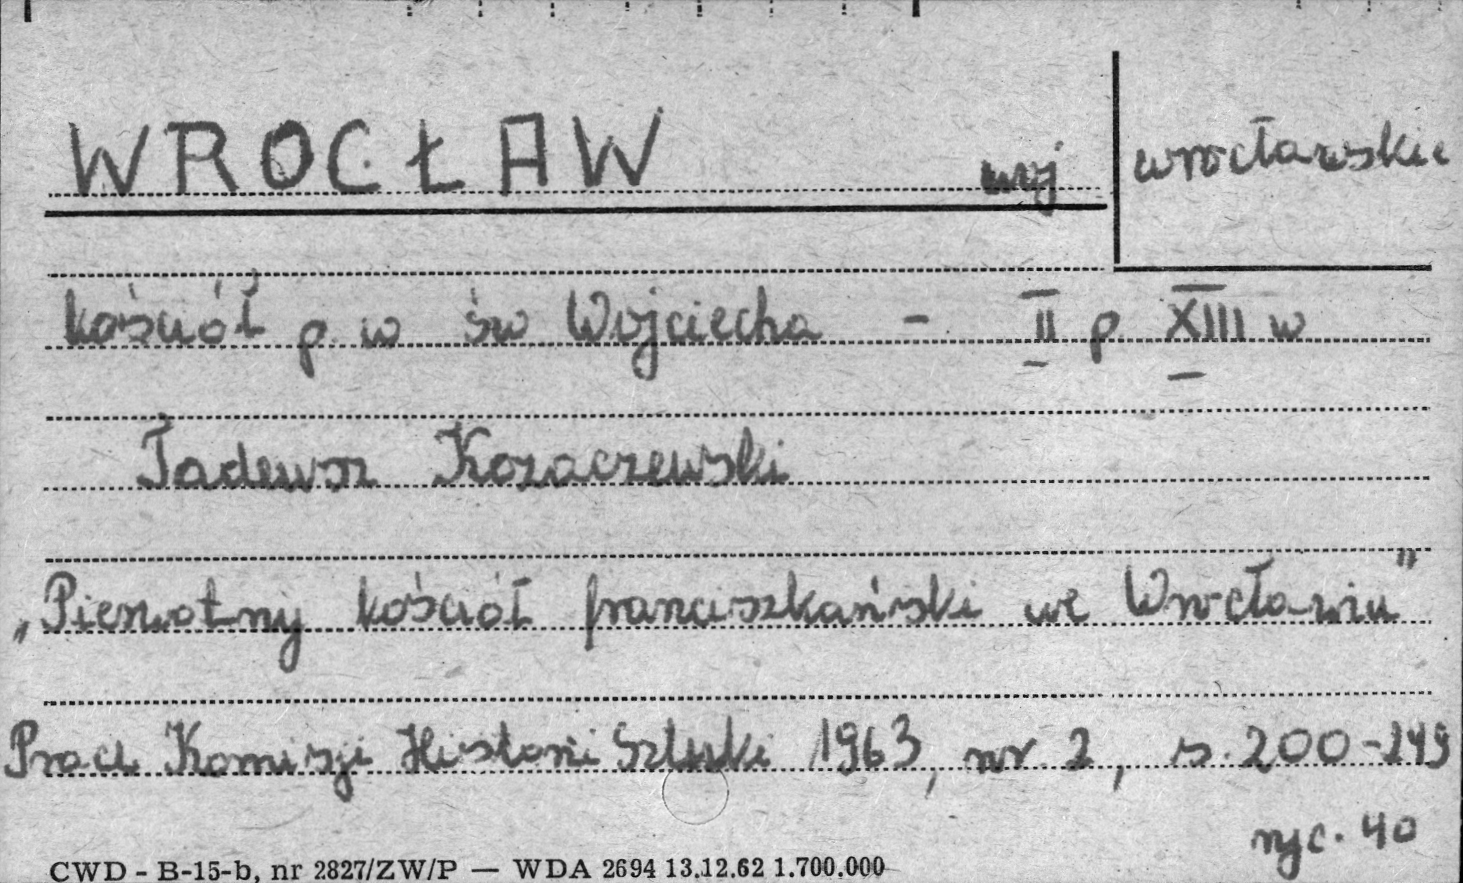 WROCŁAW woj wrocławskie
kościół p. w św Wojciecha - II p. XIII w
Tadeusz Kozaczewski
„Pierwotny kościół franciszkański we Wrocławiu"
Prace Komisji Historii Sztuki 1963, nr 2, s. 200-249
ryc. 40
CWD - B-15-b, nr 2827/ZW/P — WDA 2694 13.12.62 1.700.000